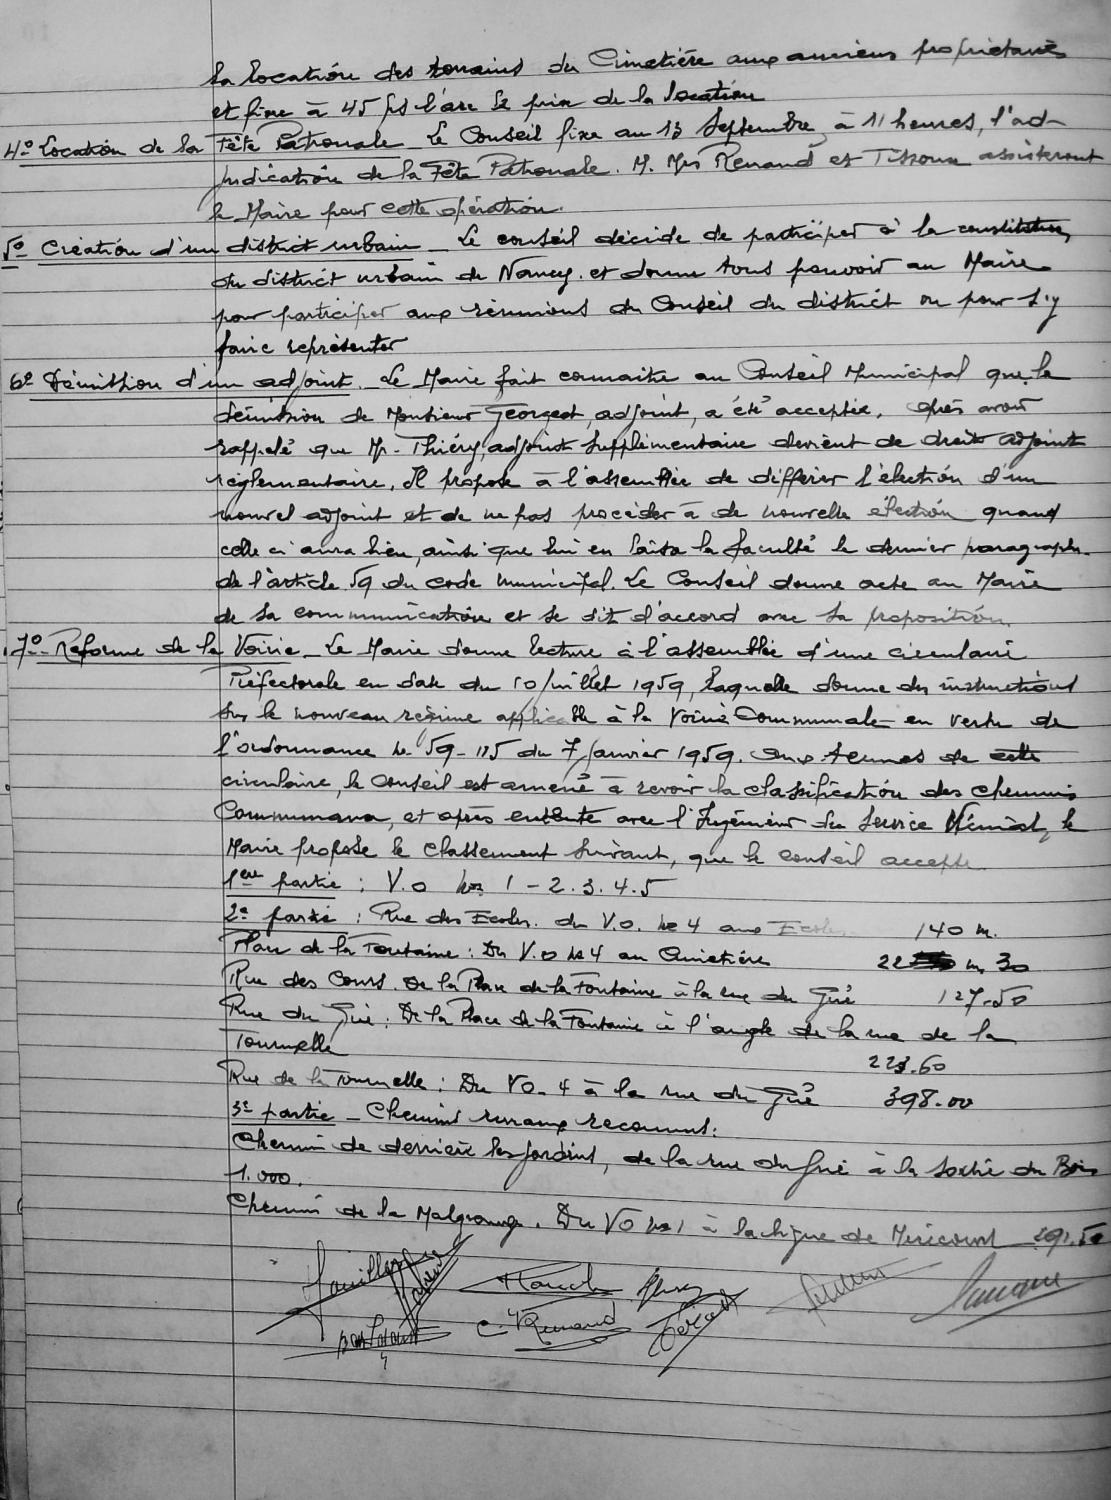 la location des terrains du Cimetière aux anciens propriétaires
et fixe à 45 frs l'are le prix de la location
4º Location de la Fête Patronale _ Le Conseil fixe au 13 Septembre, à 11 heures, l'ad-
judication de la Fête Patronale. M. Mrs Renaud et Tissoux assisteront
le Maire pour cette opération.
5º Création d'un district urbain _ Le conseil décide de participer à la constitution
du district urbain de Nancy. et donne tous pouvoir au Maire
pour participer aux réunions du Conseil du district ou pour s'y
faire représenter
6º Démission d'un adjoint. _ Le Maire fait connaitre au Conseil Municipal que la
démission de Monsieur Georgeot, adjoint, a été acceptée. Après avoir
rappelé que Mr. Thiéry, adjoint supplémentaire devient de droit adjoint
réglementaire. Il propose à l'assemblée de différer l'élection d'un
nouvel adjoint et de ne pas procéder à de nouvelle élection quand
celle ci aura lieu, ainsi que lui en laisse la faculté le dernier paragraphe
de l'article 59 du code municipal. Le Conseil donne acte au Maire
de sa communication et se dit d'accord avec sa proposition.
7º _ Reforme de la Voirie _ Le Maire donne lecture à l'assemblée d'une circulaire
Préfectorale en date du 10 juillet 1959, laquelle donne des instructions
sur le nouveau régime applicable à la Voirie Communale en vertu de
l'ordonnance No 59-115 du 7 janvier 1959. Aux termes de cette
circulaire, le Conseil est amené à revoir la classification des chemins
Communaux, et après entente avec l'Ingénieur du Service Vicinal, le
Maire propose le classement suivant, que le conseil accepte
1ère partie : V.O Nos 1 - 2. 3. 4. 5
2e partie : Rue des Ecoles. du V.O. No 4 aux Ecoles 140 m.
Place de la Fontaine : Du V.O No 4 au Cimetière 22 m 30
Rue des Cours. De la Place de la Fontaine à la rue du Gué 127.50
Rue du Gué : De la Place de la Fontaine à l'angle de la rue de la
Tournelle 223.60
Rue de la Tournelle : Du VO. 4 à la rue du Gué 398.00
3e partie _ Chemins ruraux reconnus :
Chemin de derrière les jardins, de la rue du Gué à la sortie du Bois
1.000.
Chemin de la Malgrange. Du VO No 1 à la ligne de Mirecourt 291.50
C. Renaud